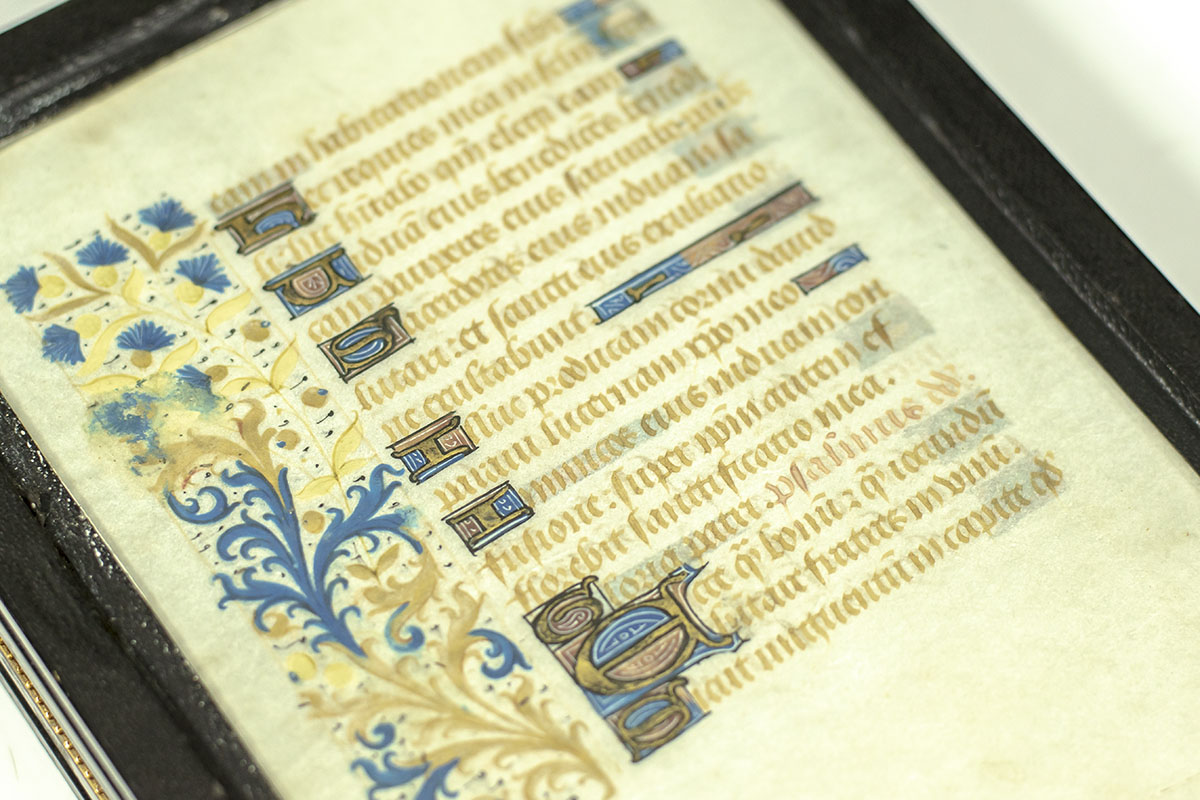 eam in habitationem sibi
Hec requies mea in sclm
scli hic hitabo qm̄ elegi eam
Uiduā eius benedicēs benedi
cam pauperes eius saturabo
Sacerdotes eius induam sa
lutari: et sancti eius exultatio
ne exultabunt
Illuc producam cornu dauid
paraui lucernam xp̄o meo
Inimicos eius induam con
fusione: super ip̄m autem ef
florebit sanctificatio mea.
Gloria patri psalmus dd.
Ecce q̄ bonū: ⁊ q̄ iocundū
habitare fratres in unū.
Sicut unguentū in capite qd